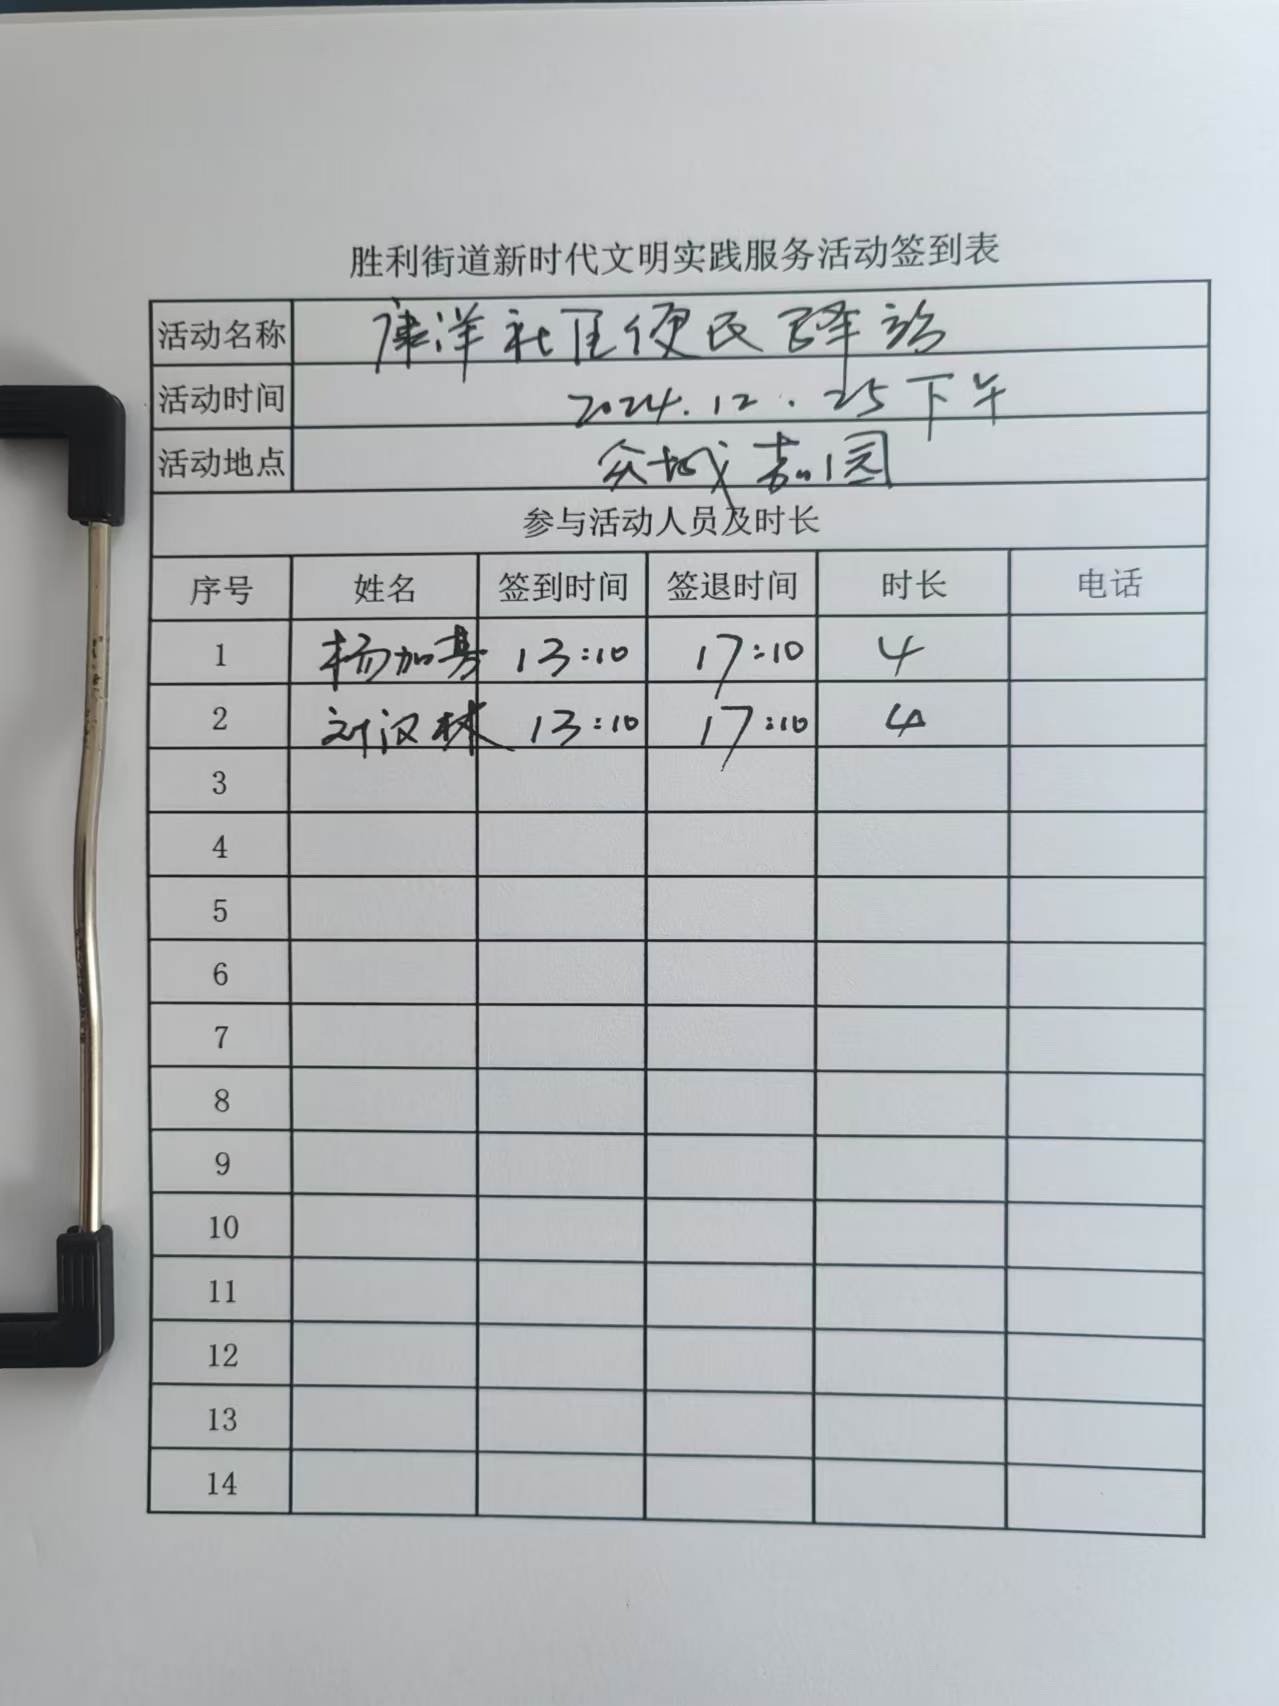 胜利街道新时代文明实践服务活动签到表
活动名称 康洋社区便民驿站
活动时间 2024.12.25下午
活动地点 众城嘉园
参与活动人员及时长
序号 姓名 签到时间 签退时间 时长 电话
1 杨加 13:10 17:10 4
2 刘汉林 13:10 17:10 4
3
4
5
6
7
8
9
10
11
12
13
14